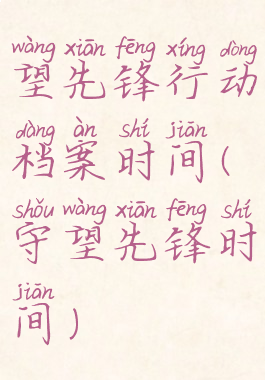 wàng xiān fēng xíng dòng
望先锋行动
dàng àn shí jiān
档案时间(
shǒu wàng xiān fēng shí
守望先锋时
jiān
间)